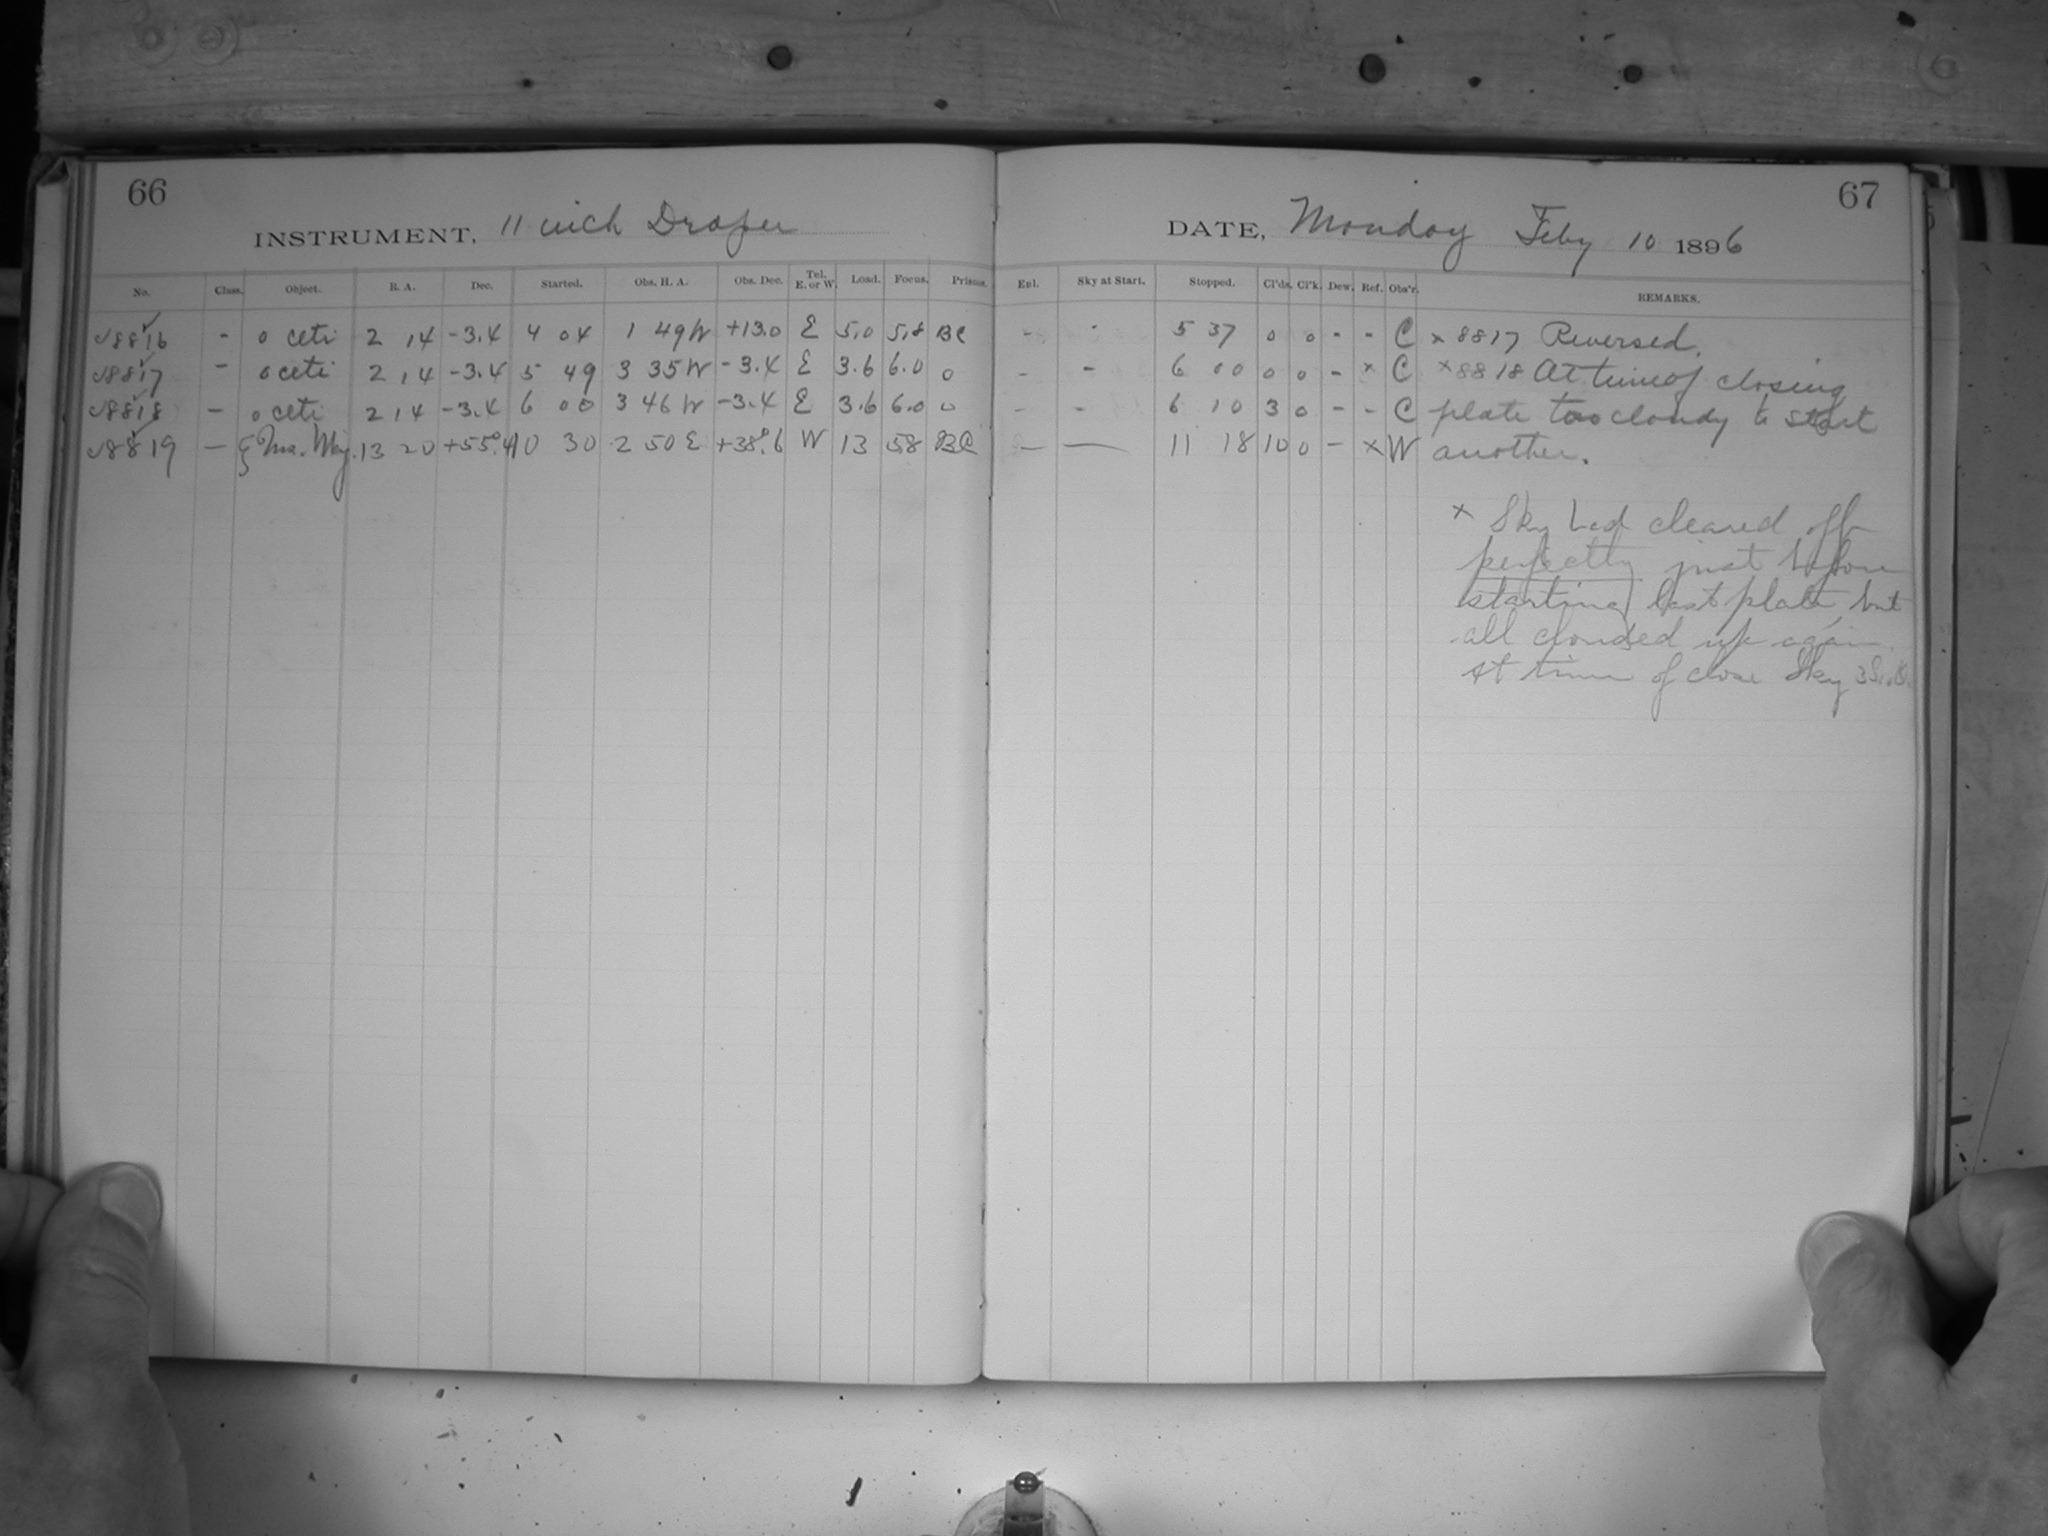 66
INSTRUMENT, 11 inch Draper
No. Class. Object. R. A. Dec. Started. Obs. H. A. Obs. Dec. Tel. E. or W. Load. Focus. Prisms.
√8816 - o ceti 2 14 -3.4 4 04 1 49W +13.0 E 5.0 5.8 BC
√8817 - o ceti 2 14 -3.4 5 49 3 35W -3.4 E 3.6 6.0 0
√8818 - o ceti 2 14 -3.4 6 00 3 46W -3.4 E 3.6 6.0 0
√8819 - ξ Urs. Maj. 13 20 +55°.4 10 30 2 50 E +38°.6 W 13 58 BC
67
DATE, Monday Feby 10 1896
Enl. Sky at Start. Stopped. Cl'ds. Cl'k. Dew. Ref. Obs'r. REMARKS.
- - 5 37 0 0 - - C x 8817 Reversed.
- - 6 00 0 0 - x C x 8818 At time of closing
- - 6 10 3 0 - - C plate too cloudy to start
- - 11 18 10 0 - x W another.
x Sky had cleared off
perfectly just before
starting last plate, but
all clouded up again
at time of close Sky